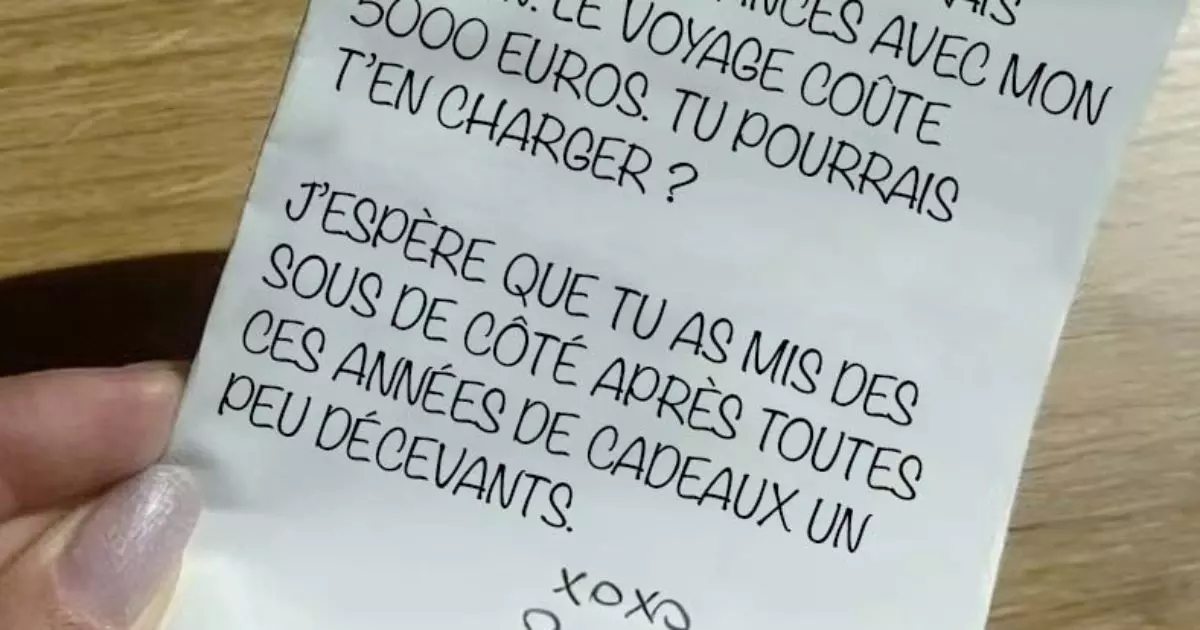 AVEC MON
LE VOYAGE COÛTE
5000 EUROS. TU POURRAIS
T'EN CHARGER ?
J'ESPÈRE QUE TU AS MIS DES
SOUS DE CÔTÉ APRÈS TOUTES
CES ANNÉES DE CADEAUX UN
PEU DÉCEVANTS.
XOXO